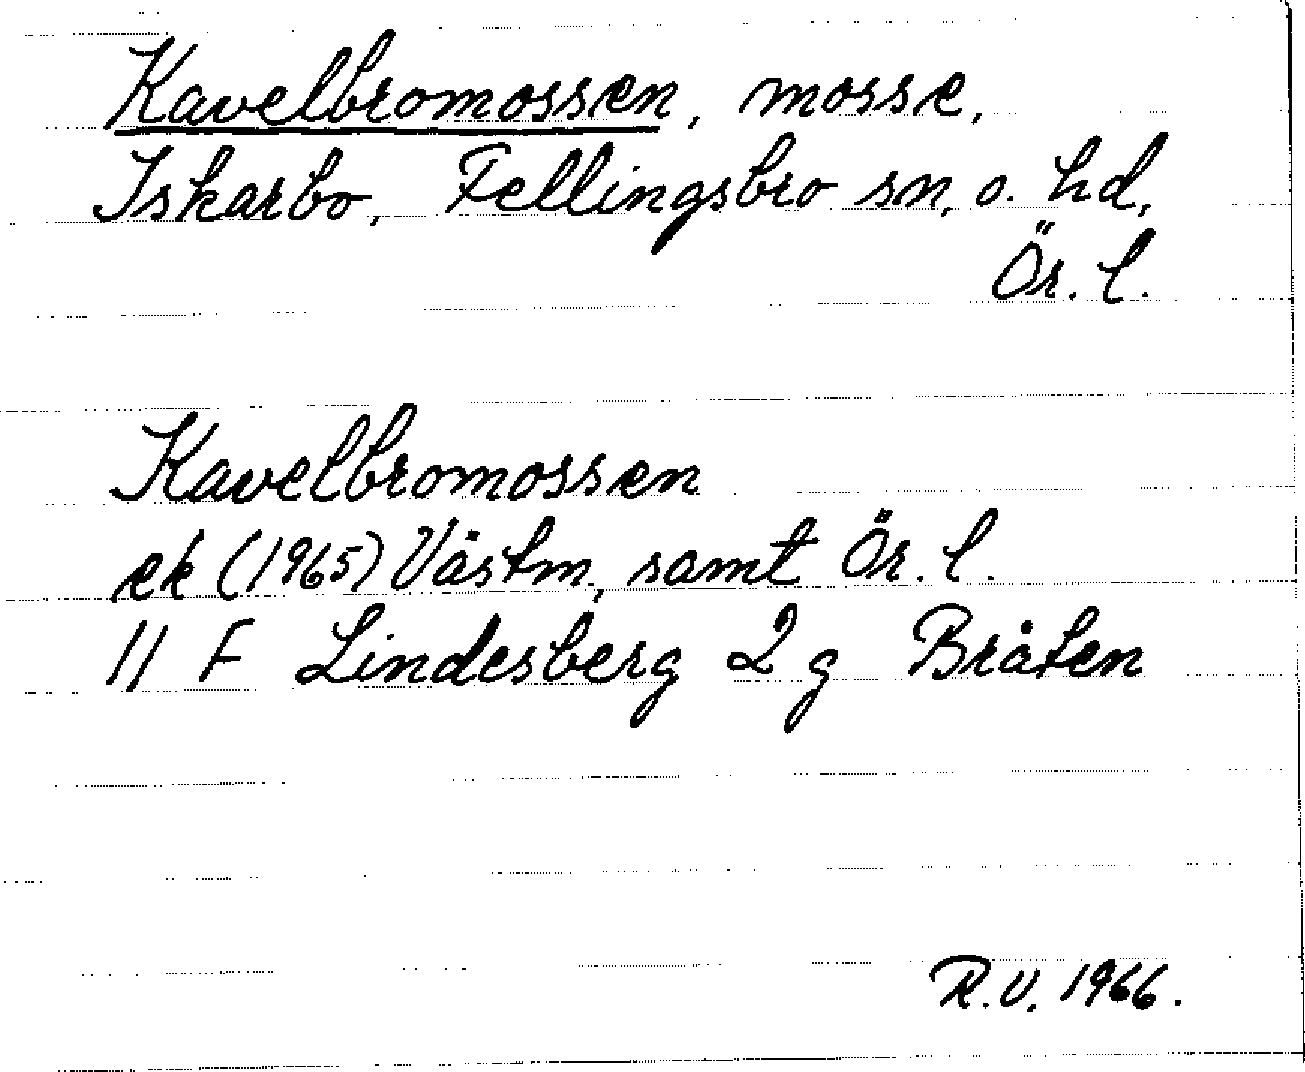 Kavelbromossen, mosse,
Iskarbo, Fellingsbro sn, o. hd,
Ör. l.
Kavelbromossen
ek (1965) Västm, samt Ör. l.
11 F Lindesberg 2 g Bråten
R.V. 1966.